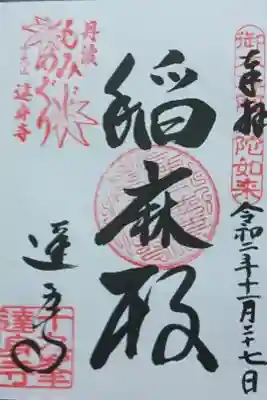 奉拝
御本尊阿弥陀如来
令和二年十一月二十七日
稲麻殿
丹波
もみじ
めぐり
達身寺
達身寺
達身寺